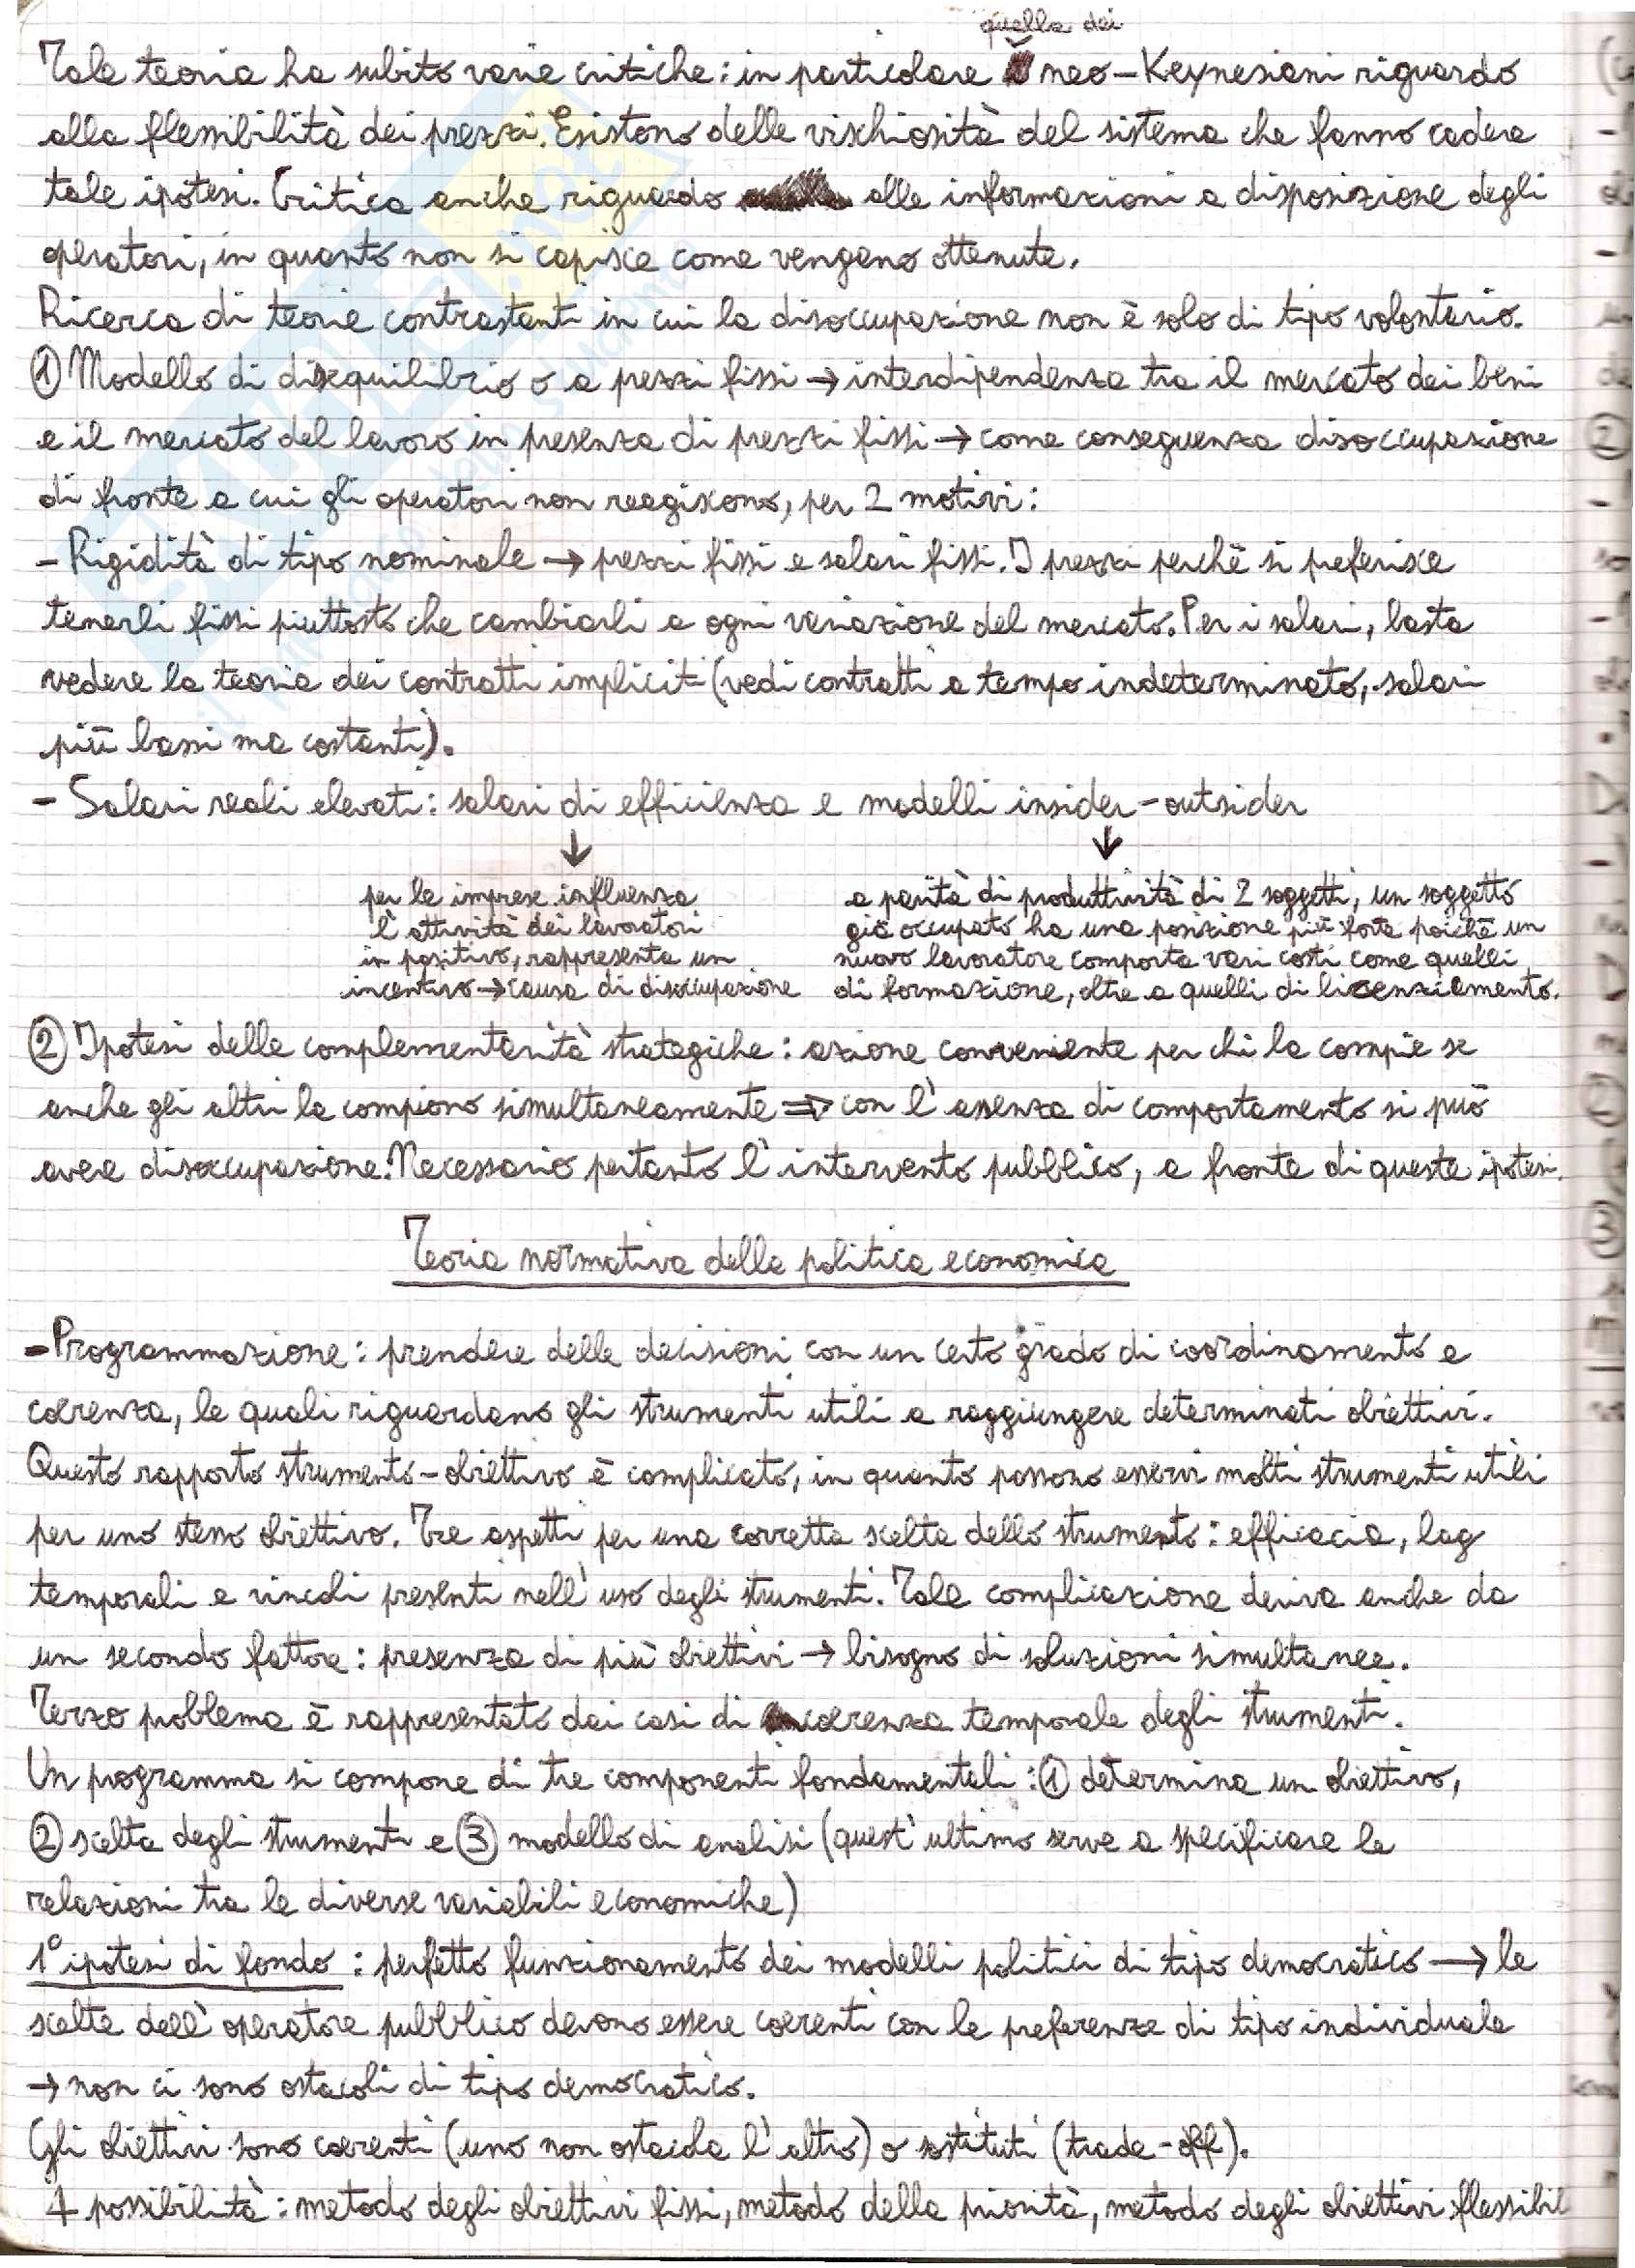 quella dei
Tale teoria ha subito varie critiche: in particolare neo-Keynesiani riguardo
alla flessibilità dei prezzi. Esistono delle vischiosità del sistema che fanno cadere
tale ipotesi. Critica anche riguardo alle informazioni a disposizione degli
operatori, in quanto non si capisce come vengano ottenute.
Ricerca di teorie contrastanti in cui la disoccupazione non è solo di tipo volontario.
① Modello di disequilibrio o a prezzi fissi → interdipendenza tra il mercato dei beni
e il mercato del lavoro in presenza di prezzi fissi → come conseguenza disoccupazione
di fronte a cui gli operatori non reagiscono, per 2 motivi:
- Rigidità di tipo nominale → prezzi fissi e salari fissi. I prezzi perché si preferisce
tenerli fissi piuttosto che cambiarli a ogni variazione del mercato. Per i salari, basta
vedere la teoria dei contratti impliciti (vedi contratti a tempo indeterminato, salari
più bassi ma costanti).
- Salari reali elevati: salari di efficienza e modelli insider-outsider
↓ ↓
per le imprese influenza
l'attività dei lavoratori
in positivo, rappresenta un
incentivo → causa di disoccupazione
a parità di produttività di 2 soggetti, un soggetto
già occupato ha una posizione più forte poiché un
nuovo lavoratore comporta vari costi come quelli
di formazione, oltre a quelli di licenziamento.
② Ipotesi delle complementarità strategiche: azione conveniente per chi la compie se
anche gli altri la compiono simultaneamente ⇒ con l'assenza di comportamento si può
avere disoccupazione. Necessario pertanto l'intervento pubblico, a fronte di queste ipotesi.
Teoria normativa della politica economica
- Programmazione: prendere delle decisioni con un certo grado di coordinamento e
coerenza, le quali riguardano gli strumenti utili a raggiungere determinati obiettivi.
Questo rapporto strumento-obiettivo è complicato, in quanto possono esservi molti strumenti utili
per uno stesso obiettivo. Tre aspetti per una corretta scelta dello strumento: efficacia, lag
temporali e vincoli presenti nell'uso degli strumenti. Tale complicazione deriva anche da
un secondo fattore: presenza di più obiettivi → bisogno di soluzioni simultanee.
Terzo problema è rappresentato dai casi di coerenza temporale degli strumenti.
Un programma si compone di tre componenti fondamentali: ① determina un obiettivo,
② scelta degli strumenti e ③ modello di analisi (quest'ultimo serve a specificare le
relazioni tra le diverse variabili economiche)
1° ipotesi di fondo: perfetto funzionamento dei modelli politici di tipo democratico → le
scelte dell'operatore pubblico devono essere coerenti con le preferenze di tipo individuale
→ non ci sono ostacoli di tipo democratico.
Gli obiettivi sono coerenti (uno non ostacola l'altro) o sostituti (trade-off).
4 possibilità: metodo degli obiettivi fissi, metodo della priorità, metodo degli obiettivi flessibil